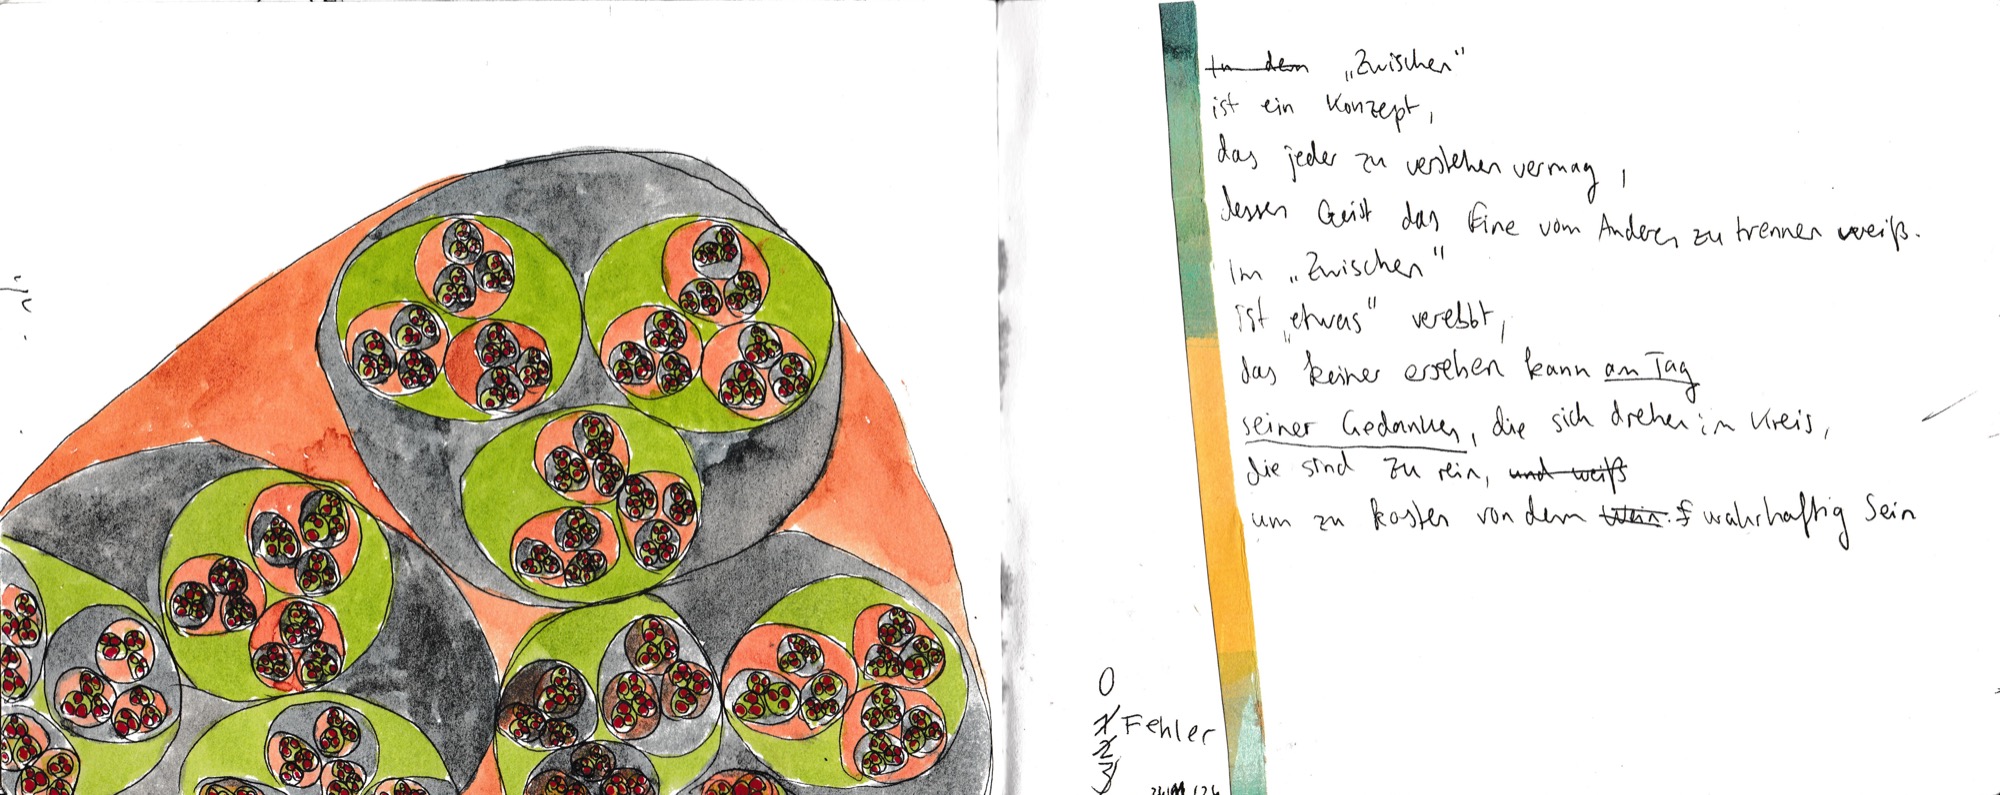 In dem „Zwischen"
ist ein Konzept,
das jeder zu verstehen vermag,
dessen Geist das Eine vom Anderen zu trennen weiß.
Im „Zwischen"
ist „etwas" verebbt,
das keiner ersehen kann an Tag
seiner Gedanken, die sich drehen im Kreis,
die sind zu rein, und weiß
um zu kosten von dem wahrhaftig Sein
0
1 Fehler
2
3